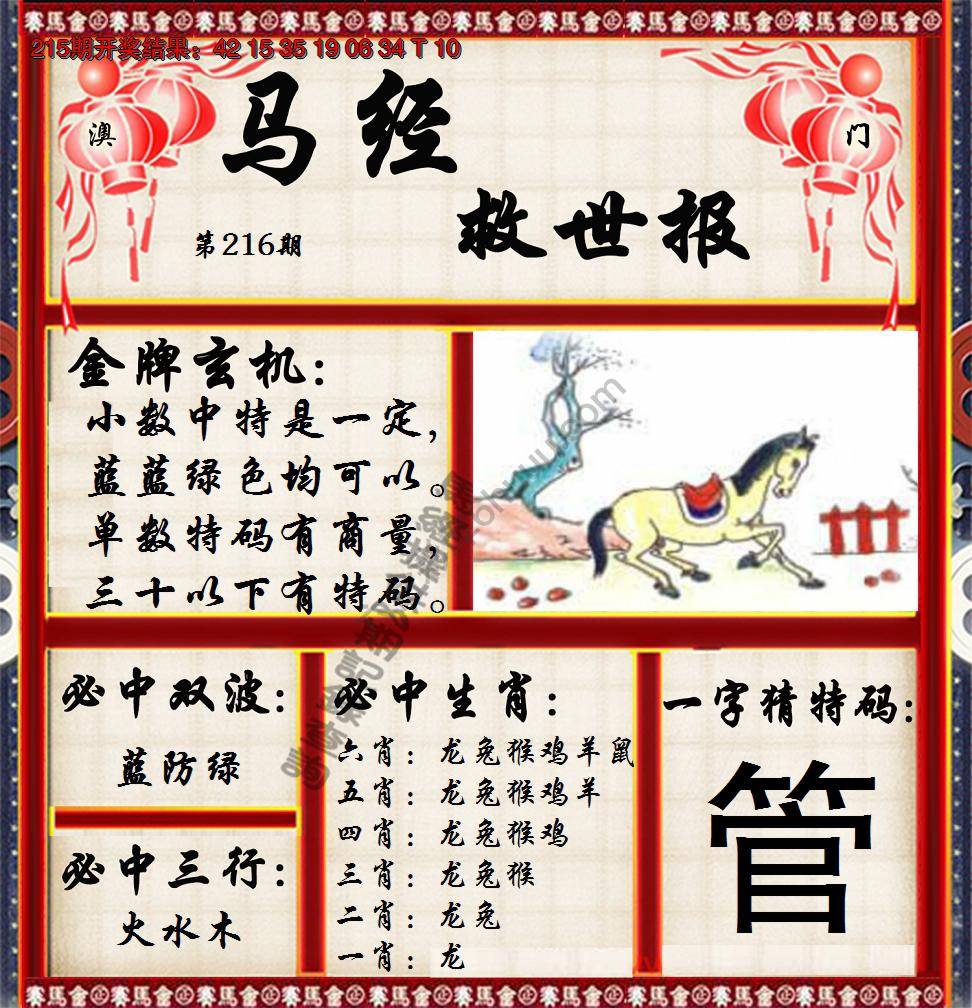 215期开奖结果：42 15 35 19 06 34 T 10
澳
门
马经
救世报
第216期
金牌玄机：
小数中特是一定，
蓝蓝绿色均可以。
单数特码有商量，
三十以下有特码。
必中双波：
蓝防绿
必中三行：
火水木
必中生肖：
六肖：龙兔猴鸡羊鼠
五肖：龙兔猴鸡羊
四肖：龙兔猴鸡
三肖：龙兔猴
二肖：龙兔
一肖：龙
一字猜特码：
管